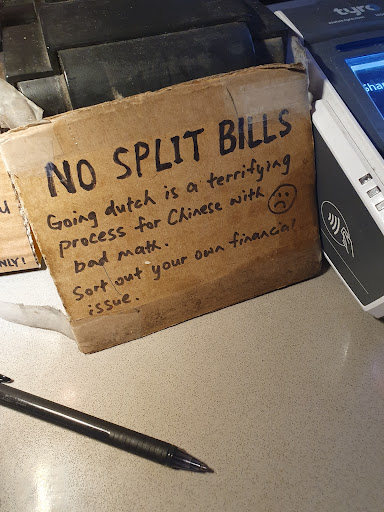 tyro
NO SPLIT BILLS
Going dutch is a terrifying
process for Chinese with
bad math.
Sort out your own financial
issue.
NLY!